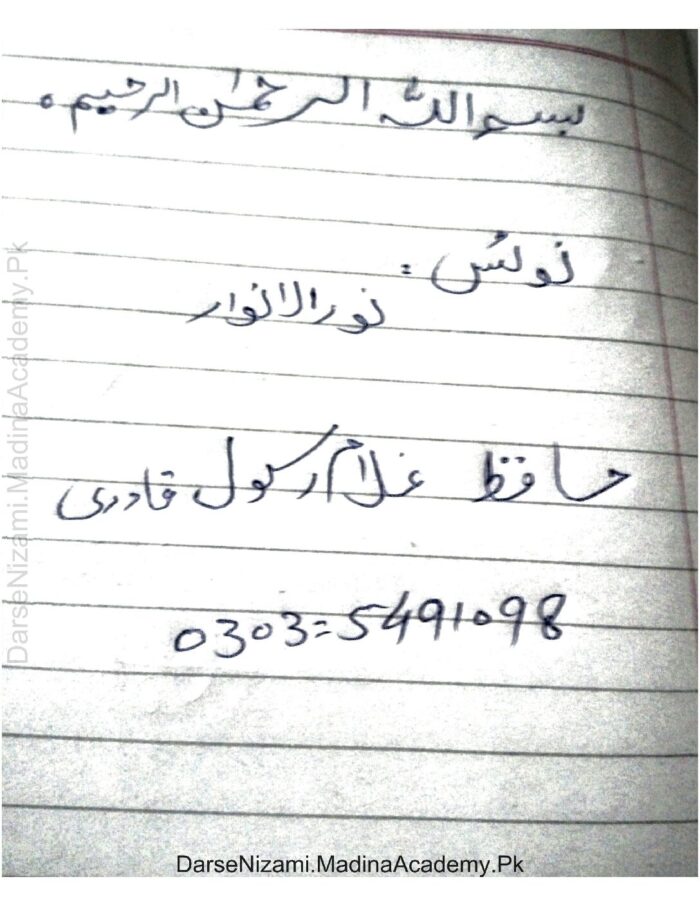 بسم الله الرحمٰن الرحیم ۰
نوٹس :
نورالانوار
حافظ غلام رسول قادری
0303=5491098
DarseNizami.MadinaAcademy.Pk
DarseNizami.MadinaAcademy.Pk